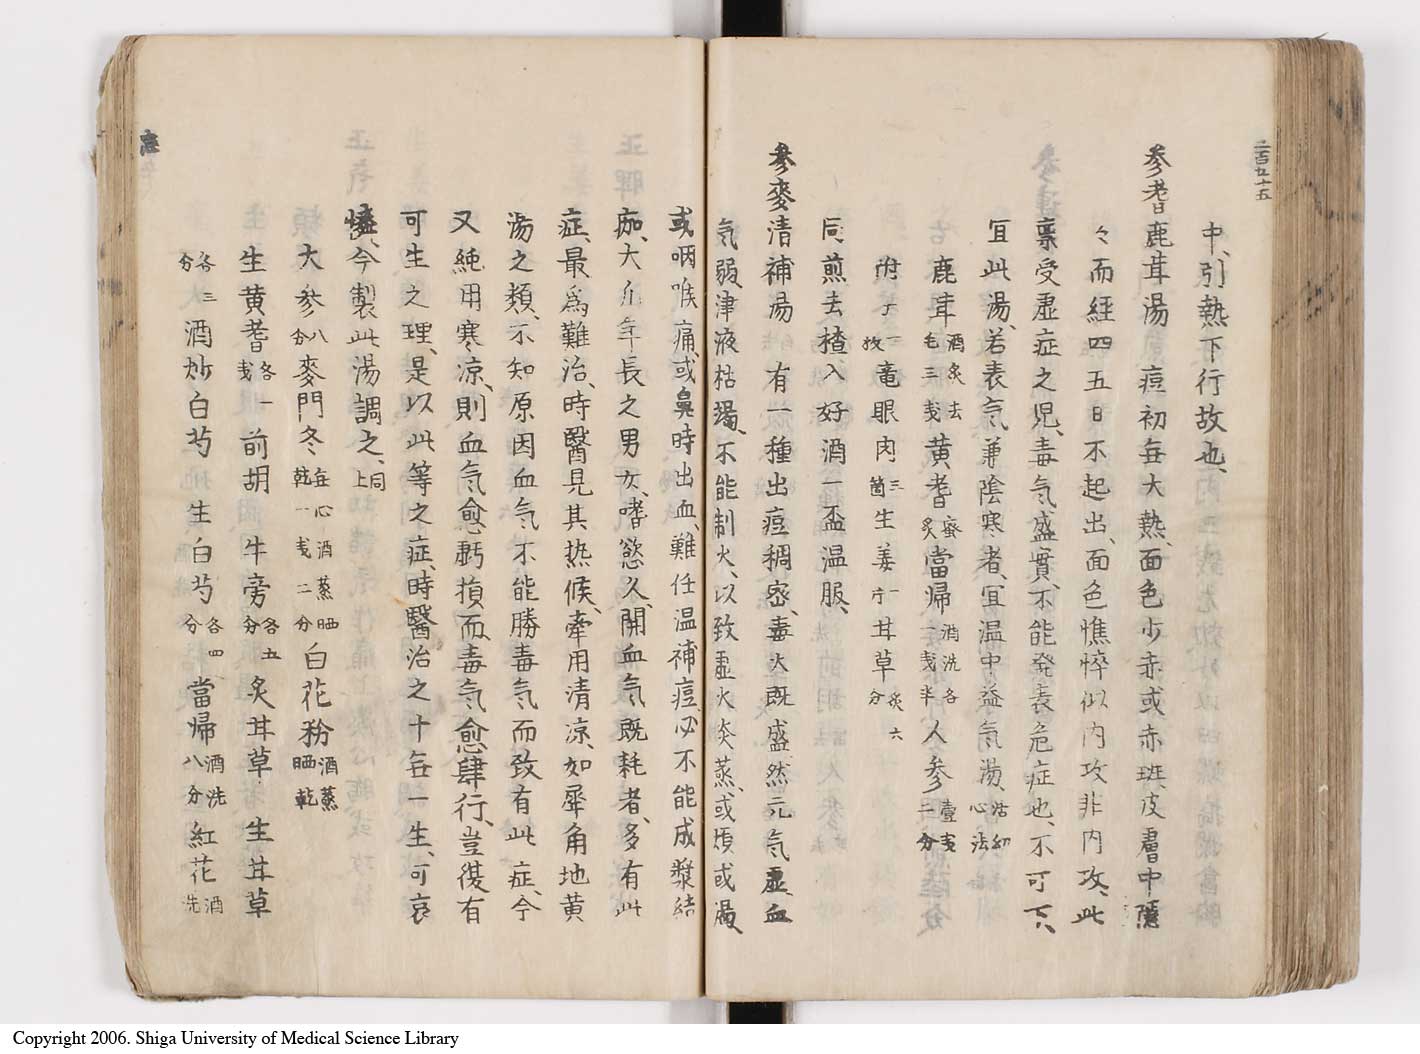 二百九十五
中、引熱下行故也、
参耆鹿茸湯 痘初毎大熱、面色少赤或赤斑、皮膚中隱
々而經四五日不起出、面色憔悴似内攻非内攻、此
稟受虚症之児、毒気盛實、不能発表危症也、不可下、
宜此湯、若表気兼陰寒者、宜温中益気湯、活幼心法
鹿茸酒炙去毛三戔黄耆蜜炙當帰酒洗各一戔半人参壹戔二分
附子一枚竜眼肉三箇生姜一片甘草炙六分
同煎去楂入好酒一盃温服、
参麥清補湯 有一種出痘稠密、毒火既盛、然元気虚、血
気弱、津液枯渇、不能制火、以致虚火炎蒸、或煩或渇、
或咽喉痛、或鼻時出血、難任温補痘、必不能成漿結
痂、大九年長之男女、嗜慾久、開血気既耗者、多有此
症、最為難治、時醫見其热候、牽用清凉、如犀角地黄
湯之類、不知原因血気不能勝毒気而致有此症、今
又純用寒凉、則血気愈虧損而、毒気愈肆行、豈復有
可生之理、是以此等之症、時醫治之十毎一生、可哀
憐、今製此湯調之、同上
大参八分麥門冬去心酒蒸晒乾一戔二分白花粉酒蒸晒乾
生黄耆各一戔前胡 牛旁各五分炙甘草 生甘草
各三分酒炒白芍 生白芍各四分當帰酒洗八分紅花酒洗